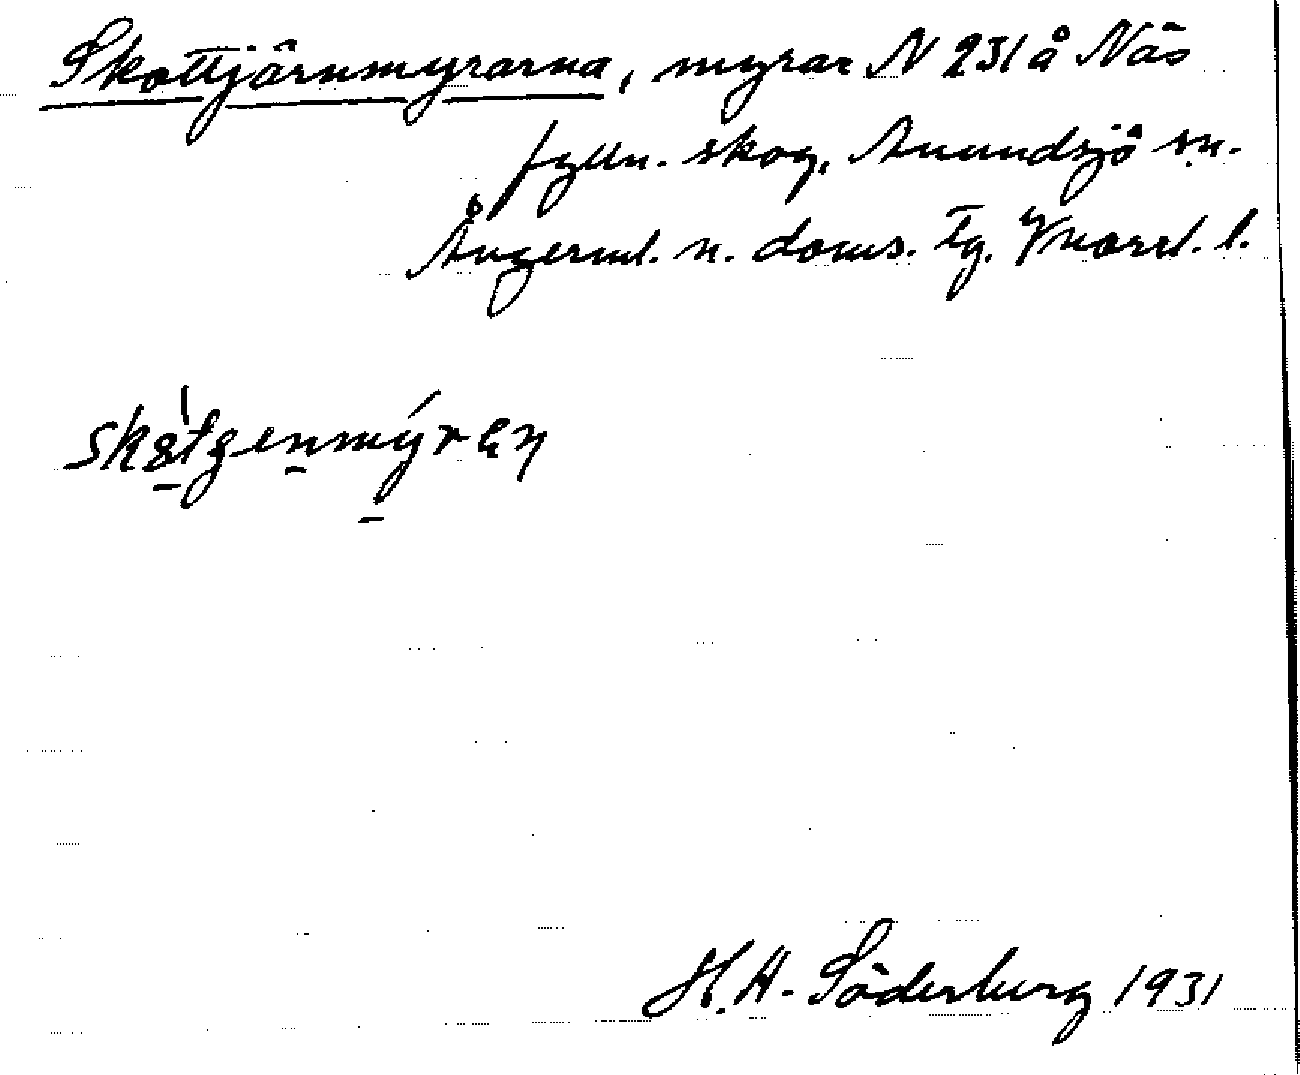 Skottjärnmyrarna, myrar N 231 å Näs
fylln. skog, Anundsjö sn.
Ångerml. n. doms. Tg. Ynorrl. l.
H. A. Söderberg 1931